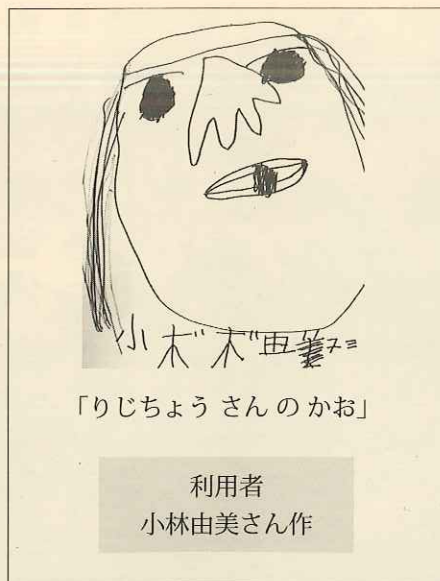 小木゛木゛由美ユミ
「りじちょう さん の かお」
利用者
小林由美さん作